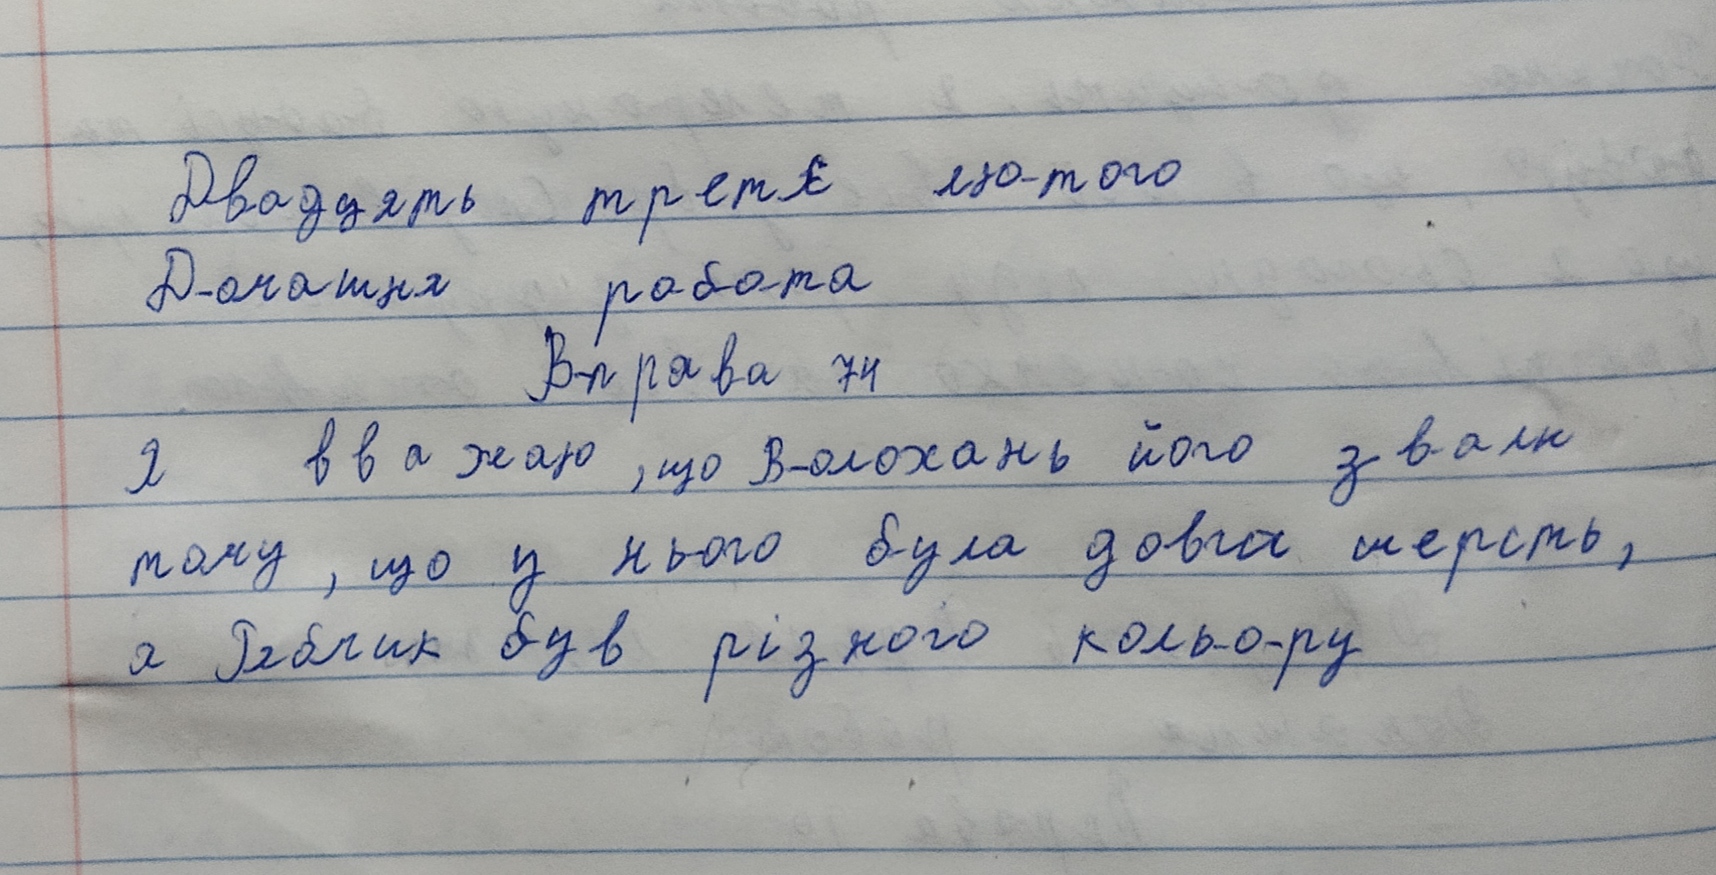 Двадцять третє лютого
Домашня робота
Вправа 74
Я вважаю, що Волохань його звали
тому, що у нього була довга шерсть,
а Рябчик був різного кольору